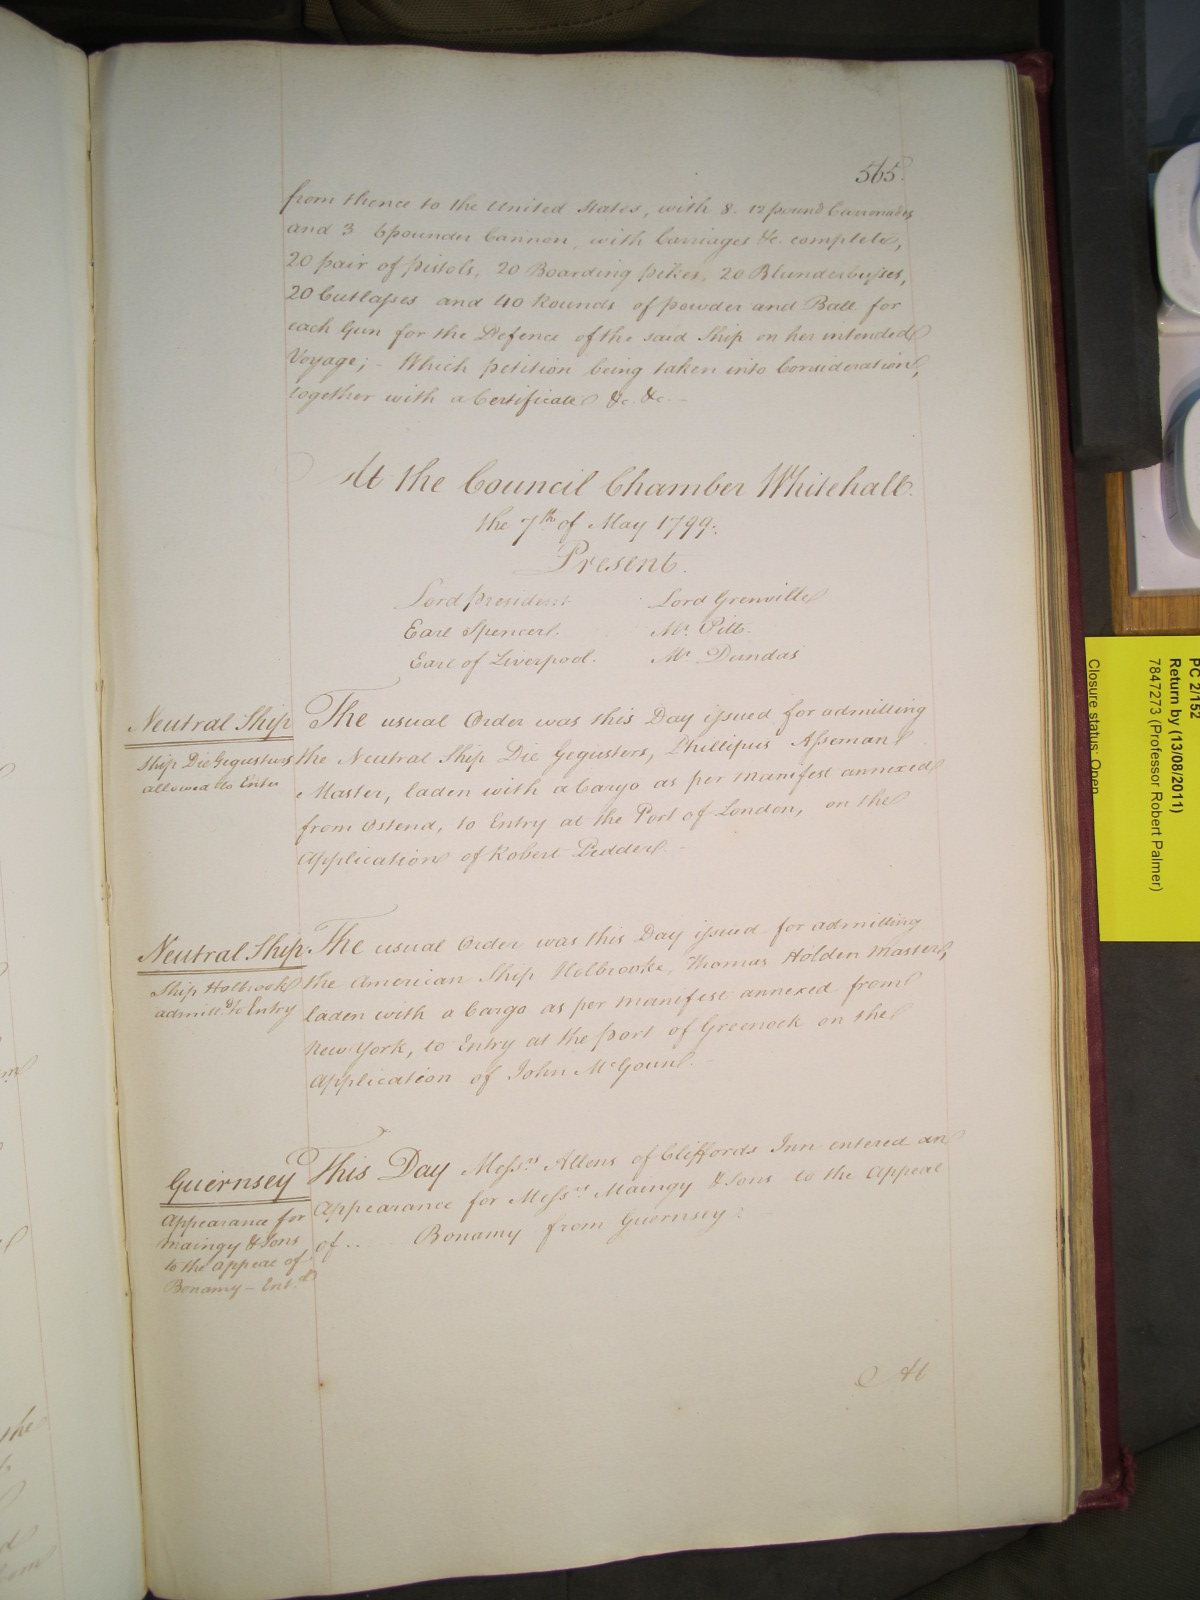 565.
from thence to the United States, with 8. 12 pound Carronades
and 3 6pounder Cannon, with Carriages &c. complete,
20 pair of pistols, 20 Boarding pikes, 20 Blunderbusses,
20 Cutlasses and 40 Rounds of powder and Ball for
each Gun for the Defence of the said Ship on her intended
Voyage; - Which petition being taken into Consideration,
together with a Certificate &c. &c. -
At the Council Chamber Whitehall.
the 7th of May 1799.
Present.
Lord president Lord Grenville
Earl Spencer. Mr. Pitt.
Earl of Liverpool. Mr Dundas
Neutral Ship
Ship Die Gegusters
allowed to Enter
The usual Order was this Day issued for admitting
the Neutral Ship Die Gegusters, Phillipus Asseman
Master, laden with a Cargo as per Manifest annexed
from Ostend, to Entry at the Port of London, on the
Application of Robert Pedder. -
Neutral Ship.
Ship Holbrook
admittd to Entry
The usual Order was this Day issued for admitting
the American Ship Holbrooke, Thomas Holden Master,
laden with a Cargo as per Manifest annexed from
New York, to Entry at the port of Greenock on the
Application of John McGoun. -
Guernsey
Appearance for
Maingy & Sons
to the appeal of
Bonamy - Entd
This Day Messrs Allens of Cliffords Inn entered an
Appearance for Messrs Maingy & Sons to the Appeal
of .. Bonamy from Guernsey.
At
PC 2/152
Return by (13/08/2011)
7847273 (Professor Robert Palmer)
Closure status: Open